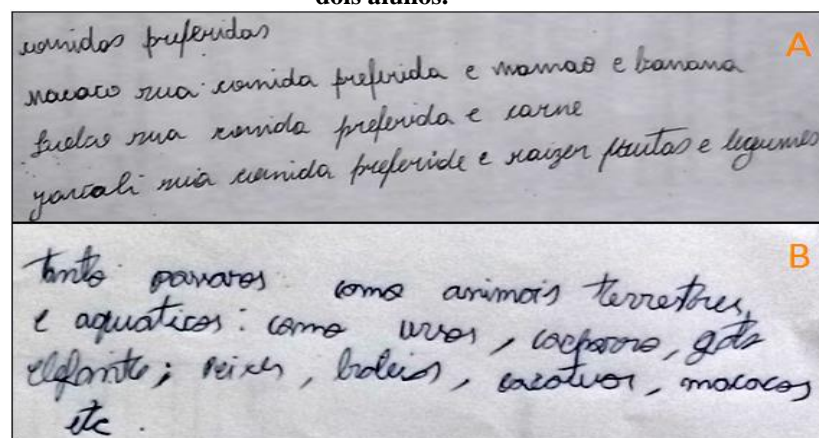 dois alunos.
A
comidas preferidas
macaco sua comida preferida e mamao e banana
sua comida preferida e carne
sua comida preferide e raizer frutas e legumes
B
tanto pavaros como animais terrestres,
e aquaticos: como ursos, cachorro, gato
elefante; peixes, baleias, macacos
etc.